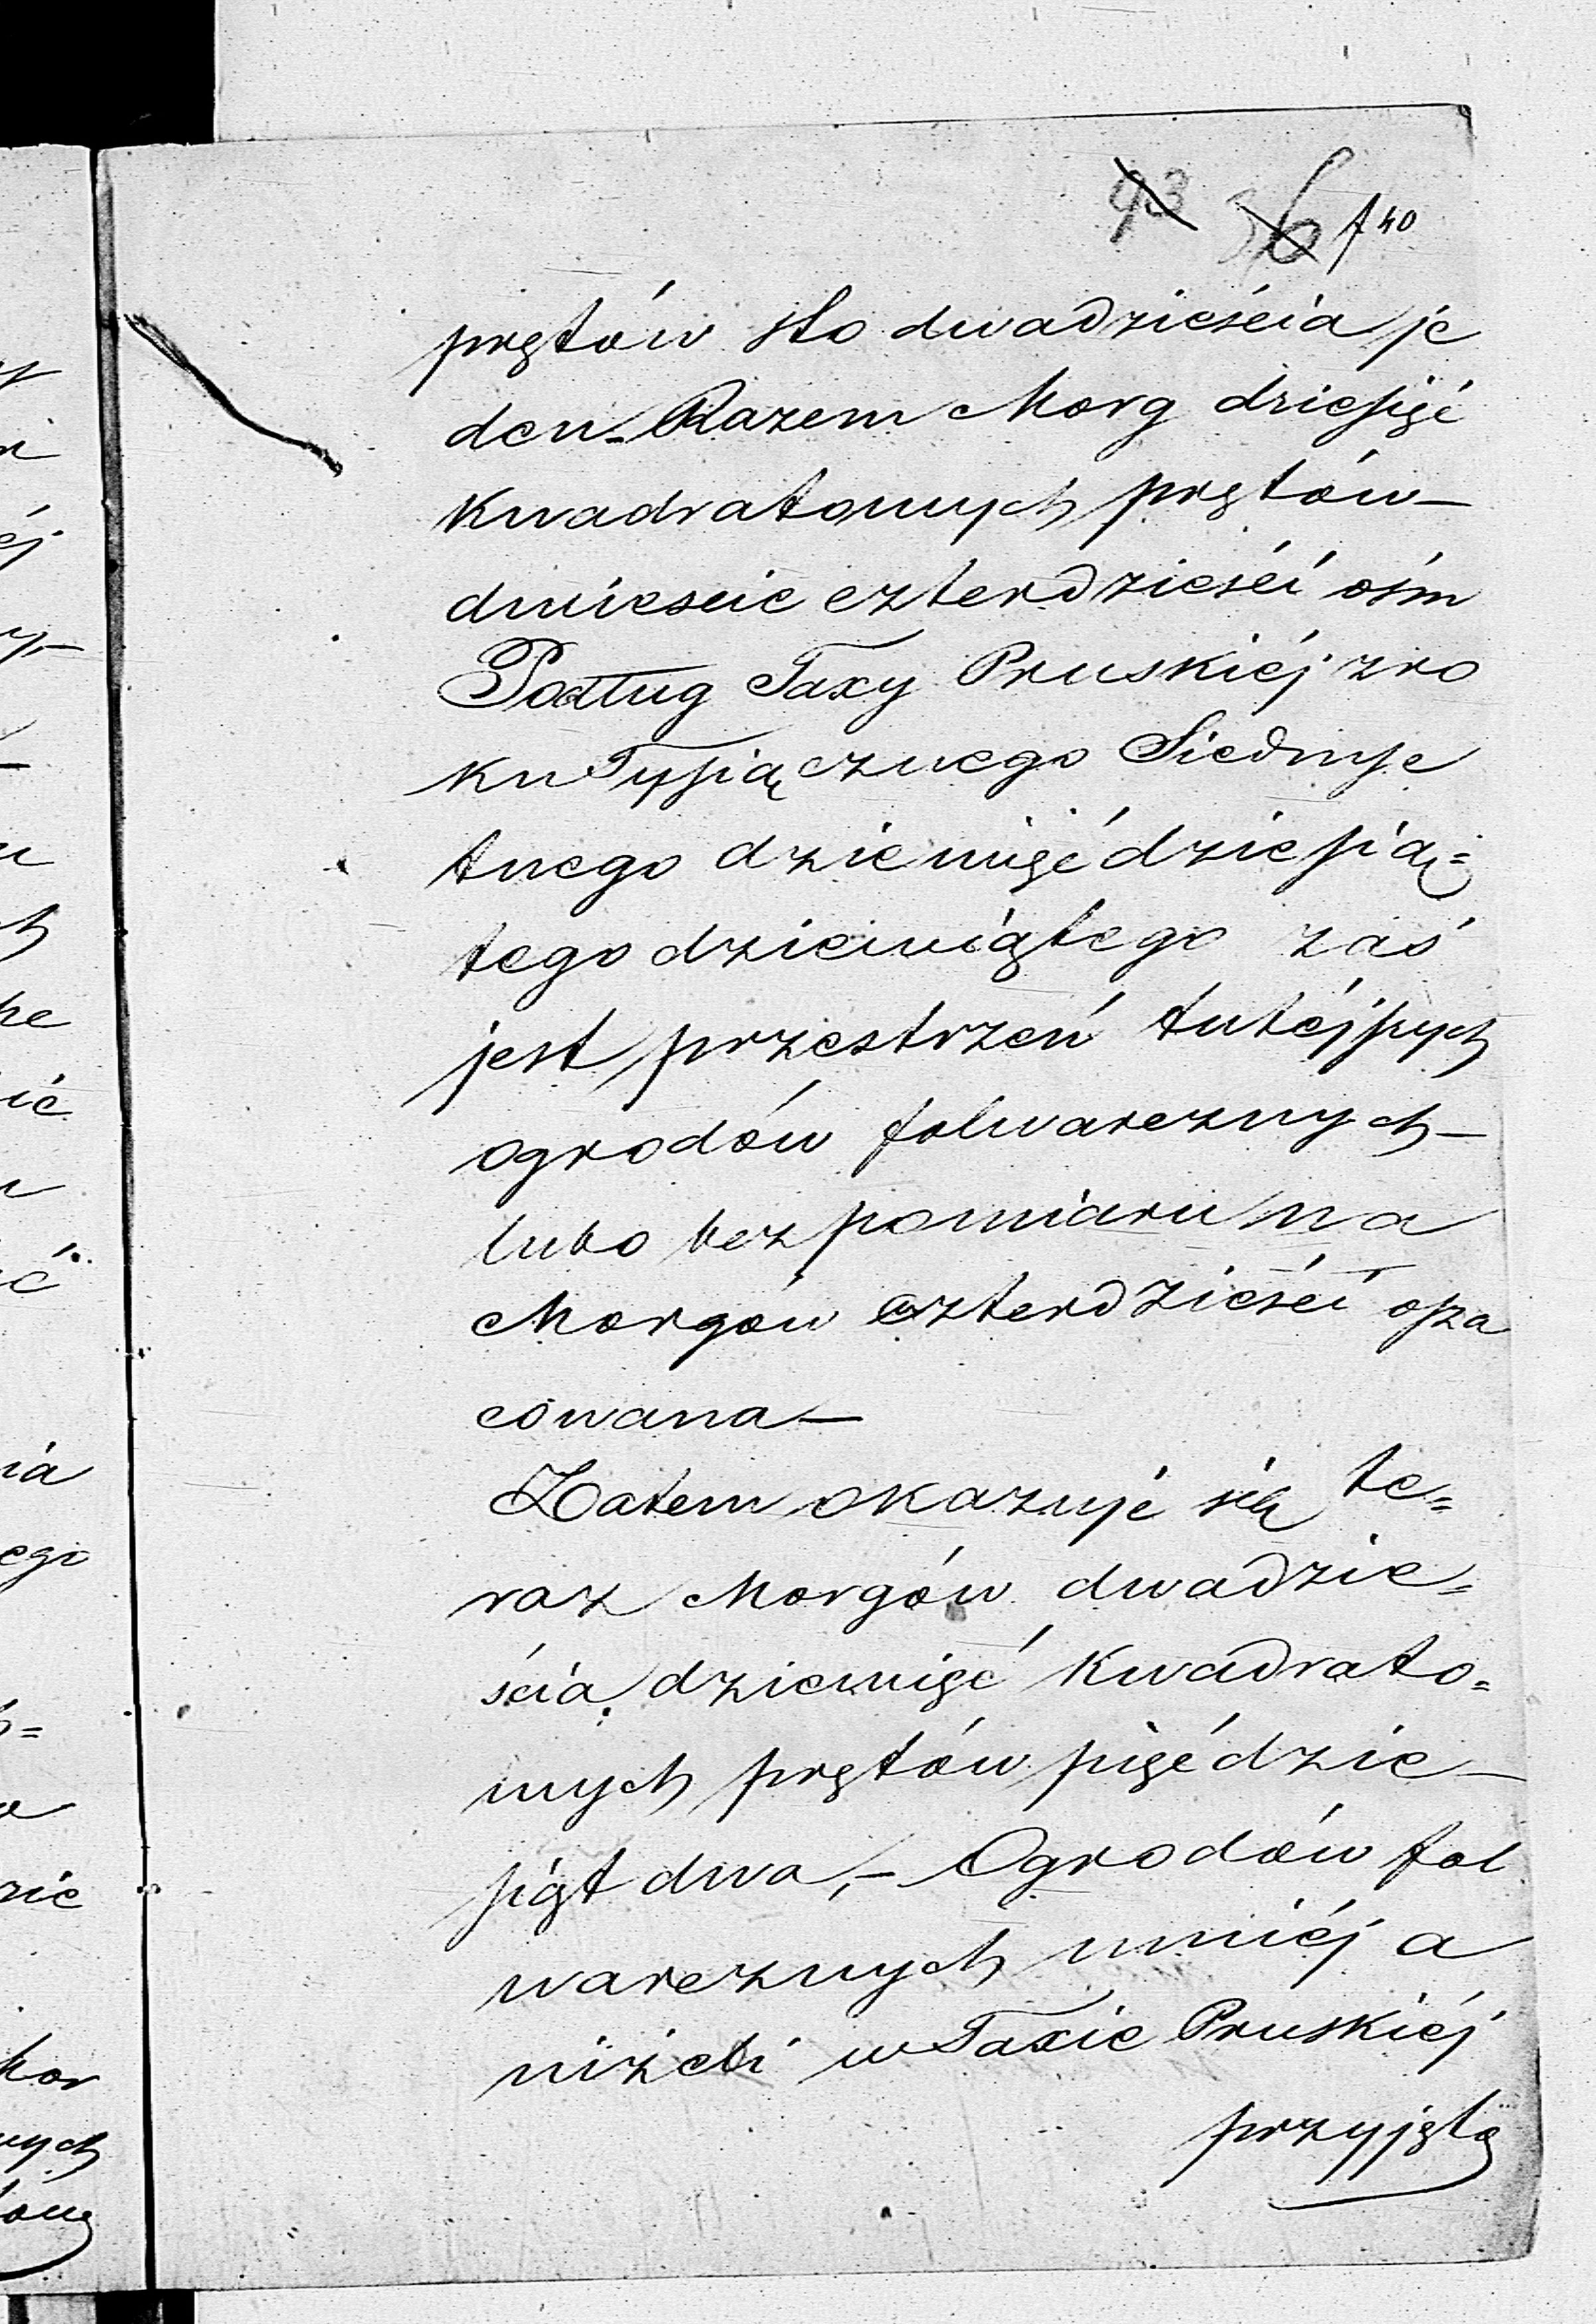 93 36 f 40
prętów sto dwadzieścia je
den - Razem Morg dziesięć
Kwadratowych prętów -
dwieście czterdzieści ośm
Podług Taxy Pruskiéj z ro
ku Tysiącznego Siedmse
tnego dziewięćdziesią=
tego dziewiątego zaś
jest przestrzeń tutéjszych
ogrodów folwarcznych -
lubo bez pomiaru na
Morgów czterdzieści osza
cowana -
Zatem okazuje się te=
raz Morgów dwadzie=
ścia dziewięć Kwadrato=
wych prętów pięćdzie -
siąt dwa, - Ogrodów fol
warcznych mniéj a
niżeli w Taxie Pruskiéj
przyjęto